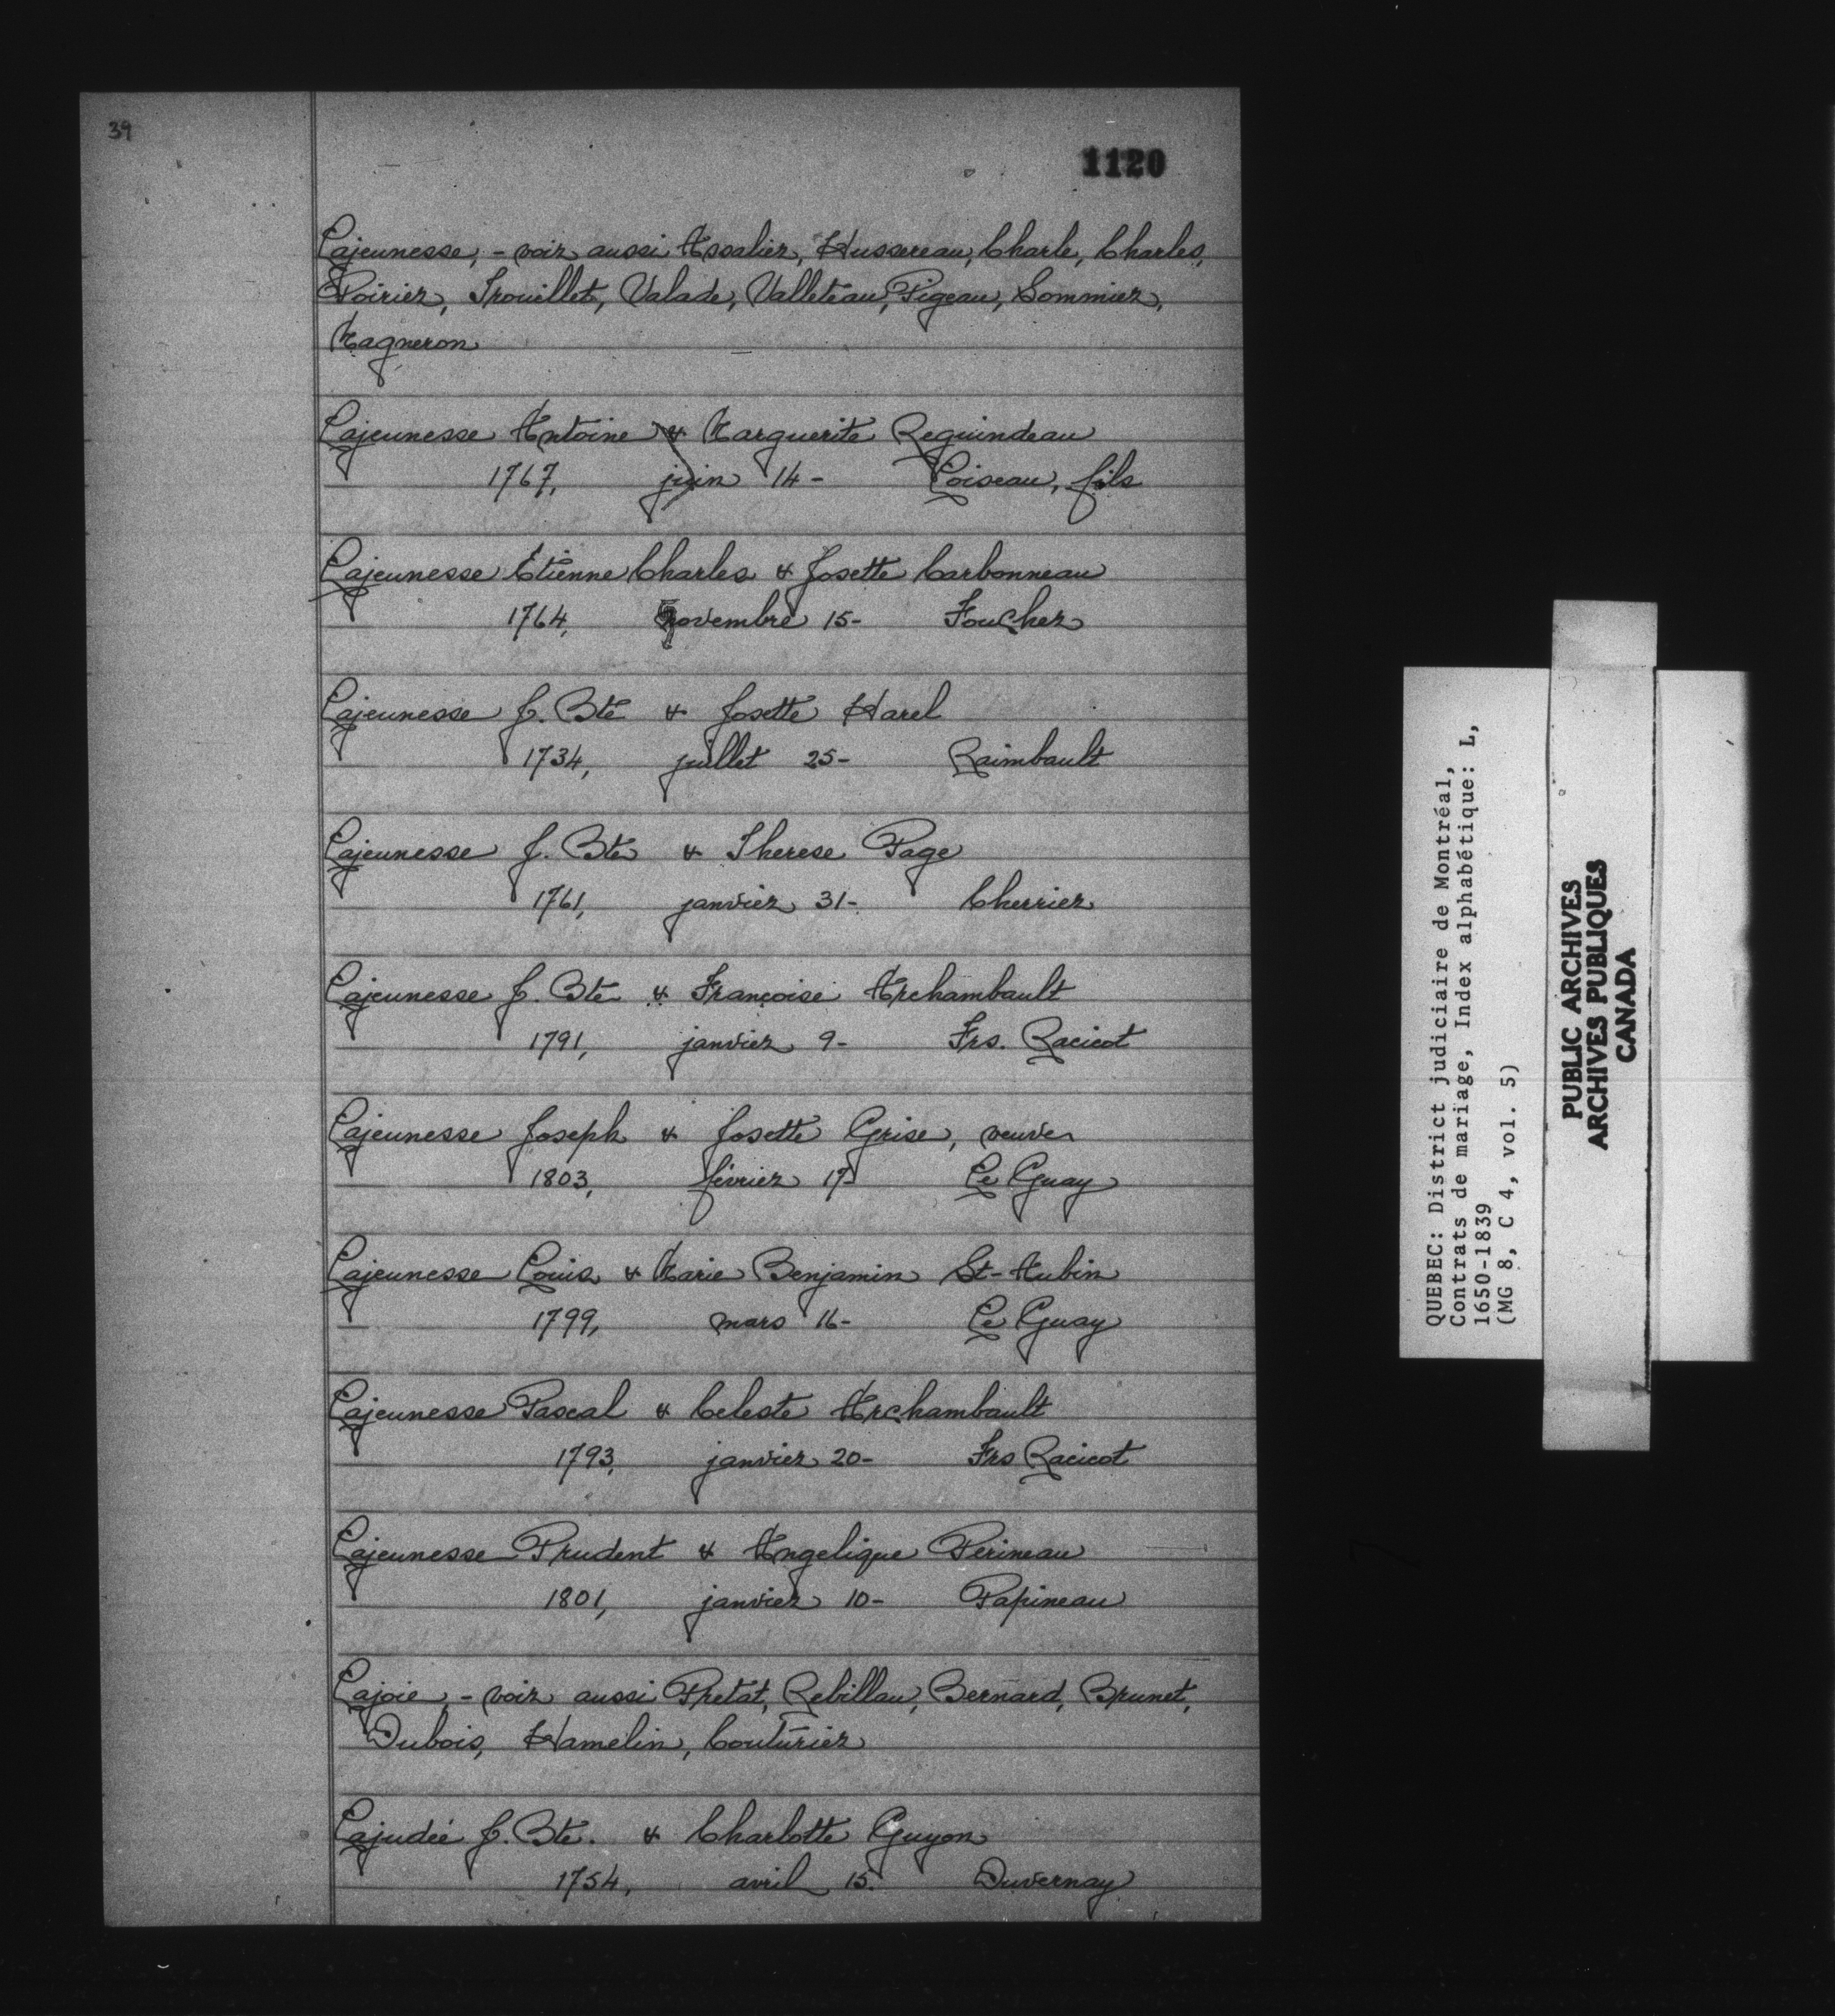 39
1120
Lajeunesse, - voir aussi Assalier, Hussereau, Charle, Charles,
Poirier, Trouillet, Valade, Valleteau, Pigeau, Sommier,
Magneron
Lajeunesse Antoine & Marguerite Reguindeau
1767, juin 14 - Loiseau, fils
Lajeunesse Etienne Charles & Josette Carbonneau
1764, novembre 15 - Foucher
Lajeunesse J. Bte & Josette Harel
1734, juillet 25 - Raimbault
Lajeunesse J. Bte & Therese Page
1761, janvier 31 - Cherrier
Lajeunesse J. Bte & Françoise Archambault
1791, janvier 9 - Frs. Racicot
Lajeunesse Joseph & Josette Grise, veuve
1803, février 17 - Le Guay
Lajeunesse Louis & Marie Benjamin St-Aubin
1799, mars 16 - Le Guay
Lajeunesse Pascal & Celeste Archambault
1793, janvier 20 - Frs Racicot
Lajeunesse Prudent & Angelique Perineau
1801, janvier 10 - Papineau
Lajoie, - voir aussi Pretat, Rebillau, Bernard, Brunet,
Dubois, Hamelin, Couturier
Lajudée J. Bte. & Charlotte Guyon
1754, avril 15. Duvernay
QUEBEC: District judiciaire de Montréal,
Contrats de mariage, Index alphabétique: L,
1650-1839
(MG 8, C 4, vol. 5)
PUBLIC ARCHIVES
ARCHIVES PUBLIQUES
CANADA